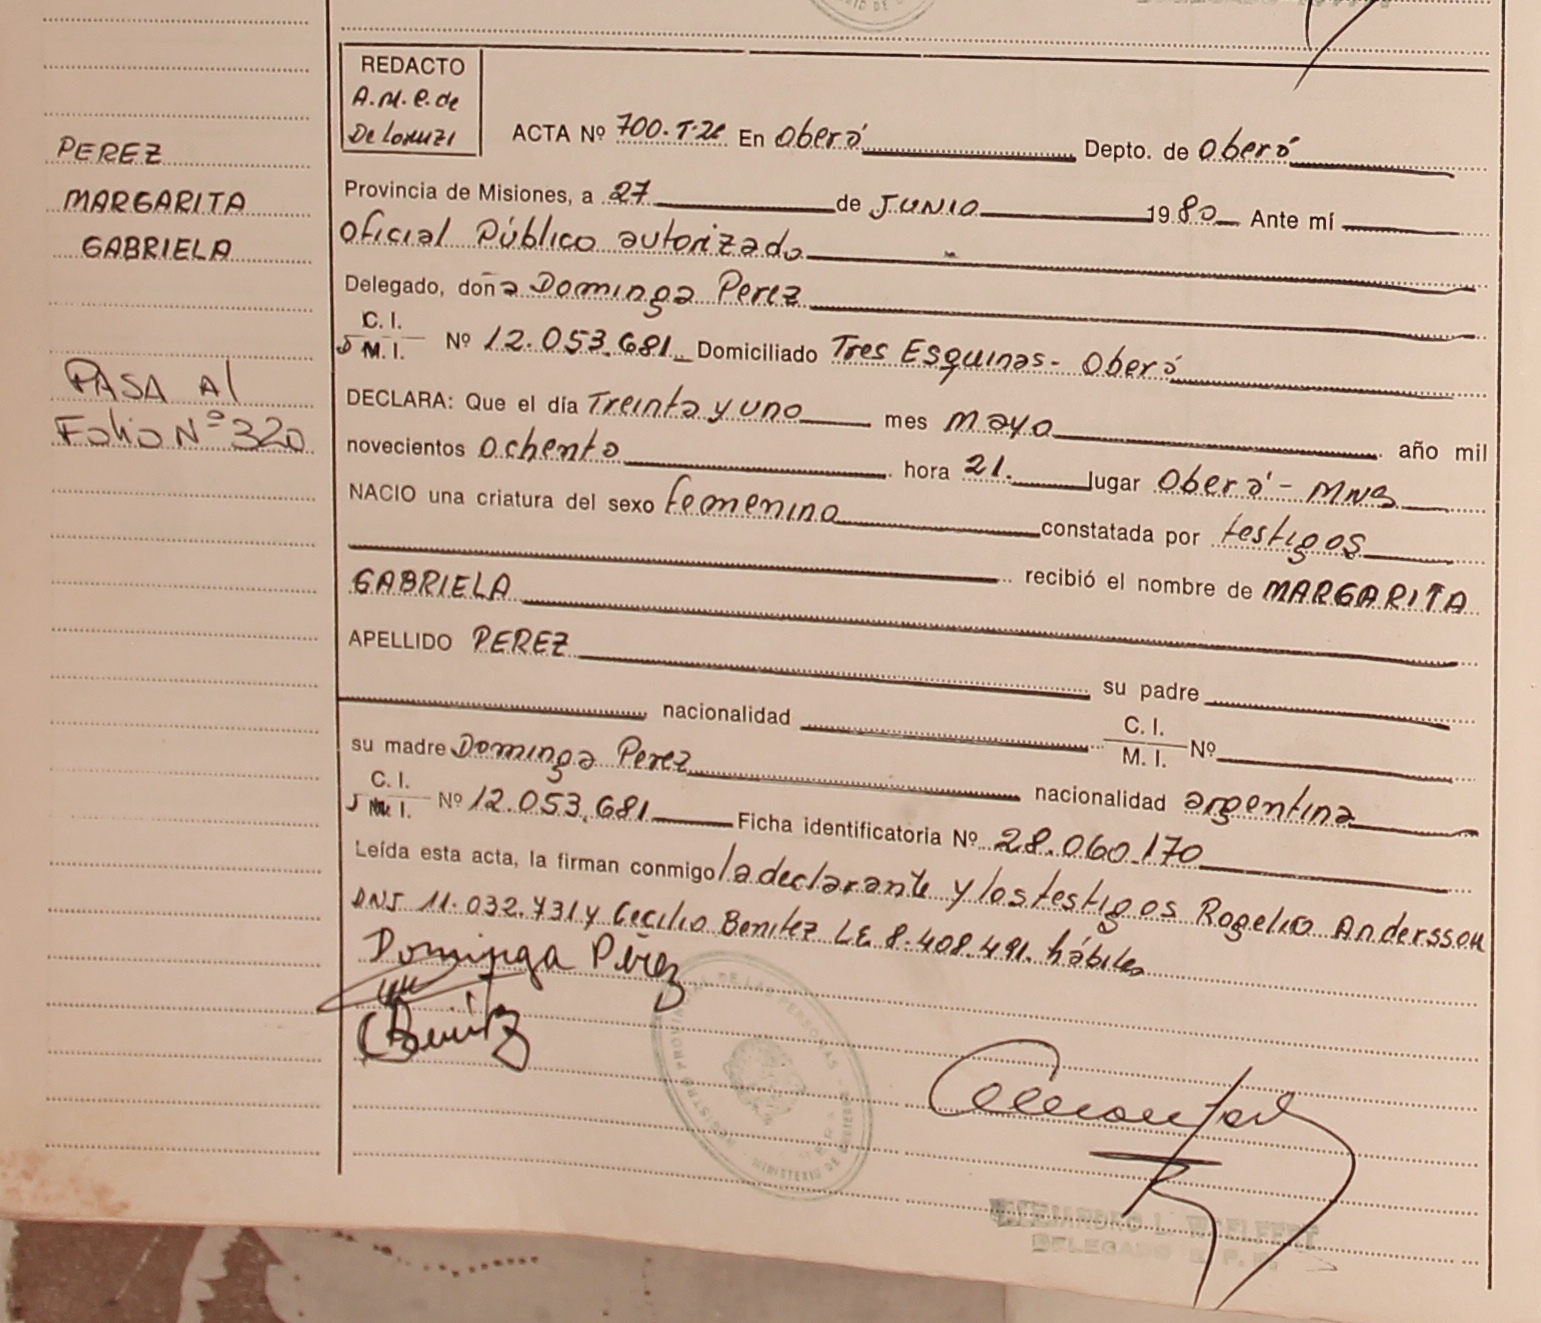 REDACTO
A.M.P. de
De Loruzi
ACTA Nº 700. T.2º En Oberá Depto. de Oberá
Provincia de Misiones, a 27 de JUNIO 1980 Ante mí
Oficial Público autorizado
Delegado, doña Dominga Perez
C. I.
M. I. Nº 12.053.681 Domiciliado Tres Esquinas - Oberá
DECLARA: Que el día Treinta y uno mes mayo año mil
novecientos ochenta hora 21. lugar Oberá - MNS
NACIO una criatura del sexo femenino constatada por testigos
recibió el nombre de MARGARITA
GABRIELA
APELLIDO PEREZ su padre
nacionalidad C. I.
M. I. Nº
su madre Dominga Perez nacionalidad argentina
C. I.
M. I. Nº 12.053.681 Ficha identificatoria Nº 28.060.170
Leída esta acta, la firman conmigo la declarante y los testigos Rogelio Andersson
DNI 11.032.731 y Cecilio Benitez LE 8.408.491. hábiles
Dominga Pérez
CBenitez
REGISTRO PROVINCIAL DE LAS PERSONAS - MINISTERIO DE GOBIERNO
DELEGADO
PEREZ
MARGARITA
GABRIELA
PASA Al
Folio Nº 320